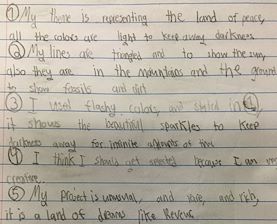 ① My theme is representing the land of peace,
all the colors are light to keep away darkness.
② My lines are and to show the sun,
also they are in the mountains and the ground
to show fossils and dirt
③ I used flashy colors, and in
it shows the beautiful sparkles to keep
darkness away for infinite amounts of time
④ I think I should get selected because I am very
creative.
⑤ My project is unusual, and rare, and rich,
it is a land of dreams like